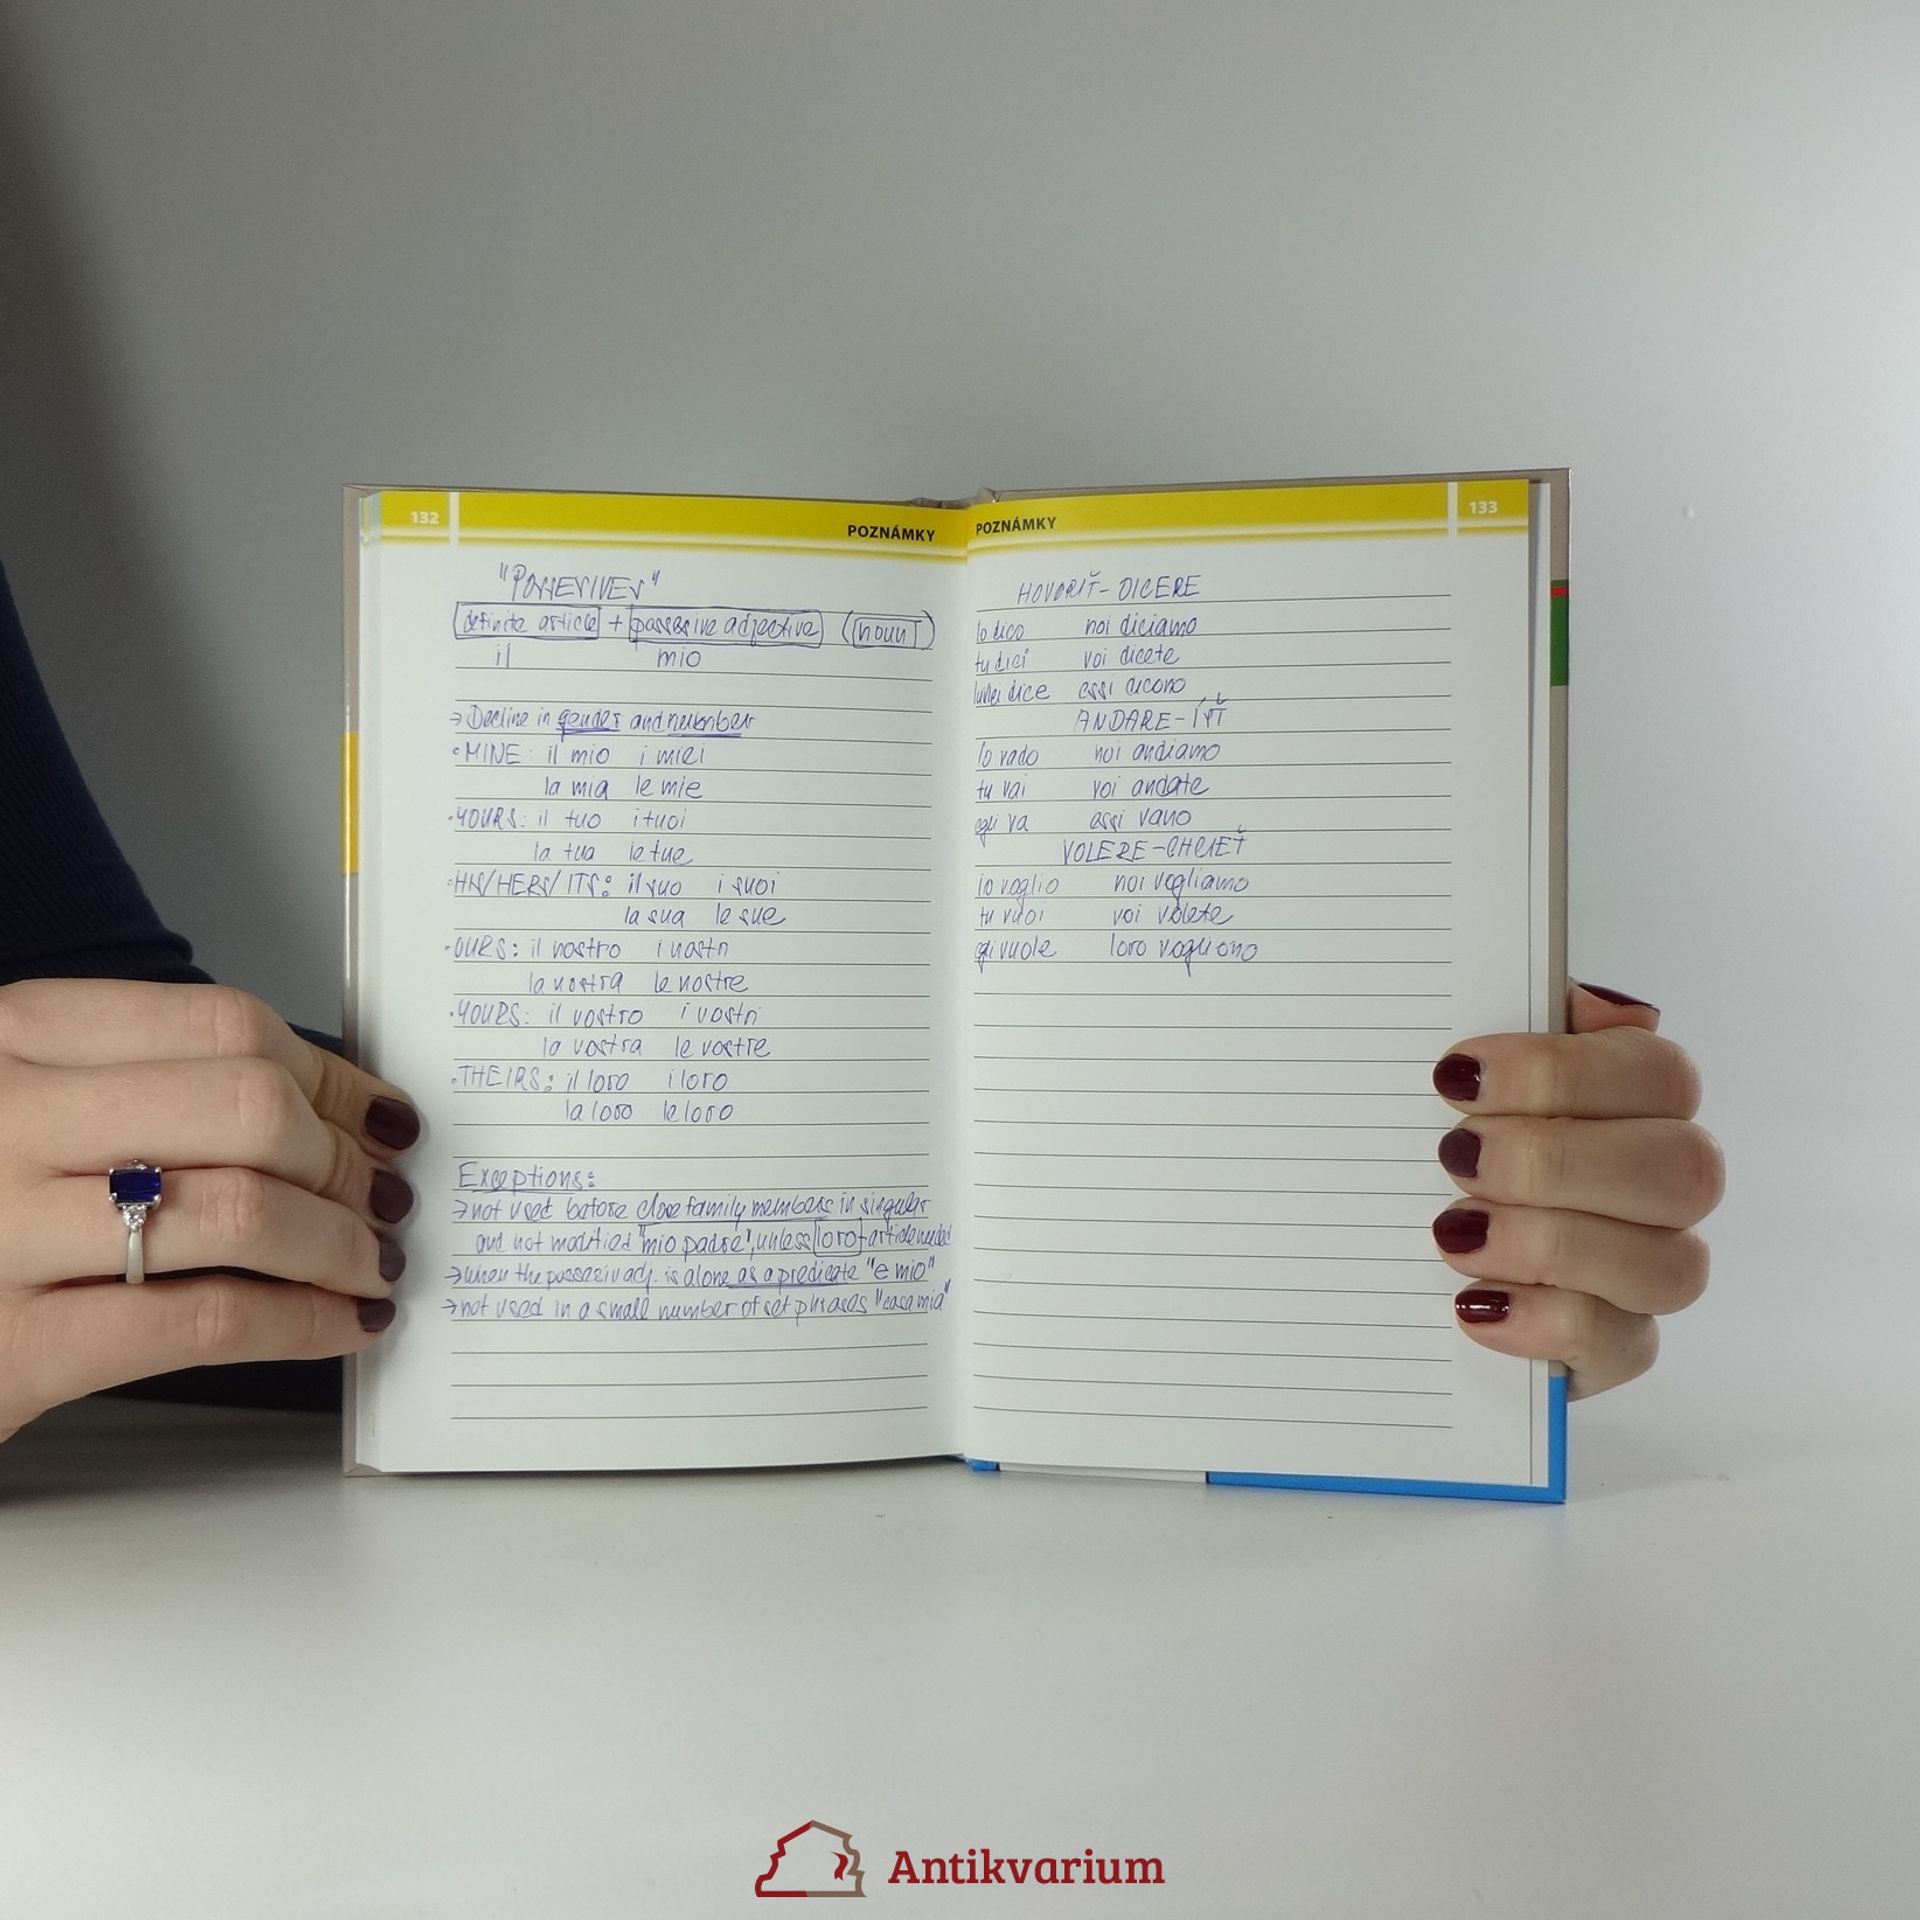 132
POZNÁMKY
"POSSESIVES"
definite article + possessive adjective (noun)
il mio
→ Decline in gender and number
• MINE: il mio i miei
la mia le mie
• YOURS: il tuo i tuoi
la tua le tue
• HIS/HERS/ITS: il suo i suoi
la sua le sue
• OURS: il nostro i nostri
la nostra le nostre
• YOURS: il vostro i vostri
la vostra le vostre
• THEIRS: il loro i loro
la loro le loro
Exceptions:
→ not used before close family members in singular
and not modified "mio padre", unless loro → article needed
→ when the possesiv adj. is alone as a predicate "e mio"
→ not used in a small number of set phrases "casa mia"
POZNÁMKY
133
HOVORIŤ - DICERE
Io dico noi diciamo
tu dici voi dicete
lui/lei dice essi dicono
ANDARE - ÍSŤ
Io vado noi andiamo
tu vai voi andate
egli va essi vano
VOLERE - CHCIEŤ
io voglio noi vogliamo
tu vuoi voi volete
egli vuole loro vogliono
Antikvarium